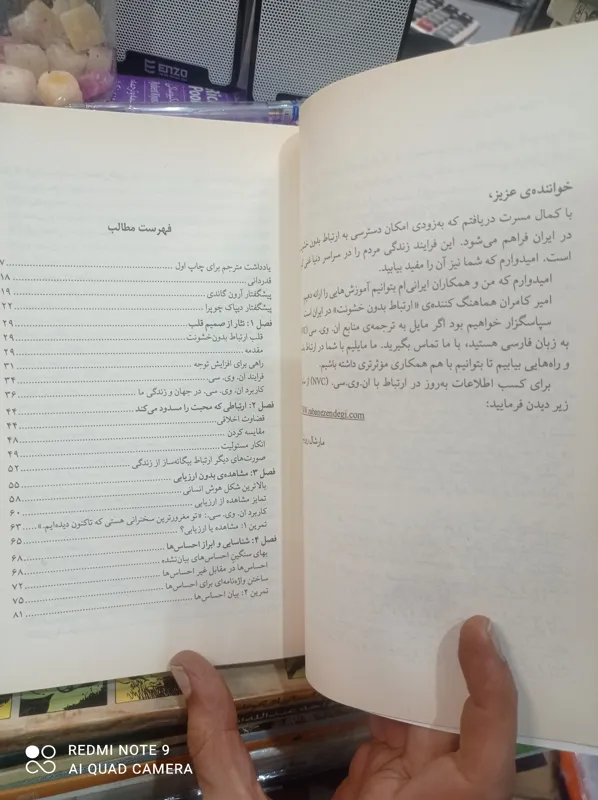 ENZO
خواننده‌ی عزیز،
با کمال مسرت دریافتم که به‌زودی امکان دسترسی به ارتباط بدون
در ایران فراهم می‌شود. این فرایند زندگی مردم را در سراسر دنیا
است. امیدوارم که شما نیز آن را مفید بیابید.
امیدوارم که من و همکاران ایرانی‌ام بتوانیم آموزش‌هایی را ارائه دهیم
امیر کامران هماهنگ کننده‌ی «ارتباط بدون خشونت» در ایران است
سپاسگزار خواهیم بود اگر مایل به ترجمه‌ی منابع ان.وی.سی
به زبان فارسی هستید، با ما تماس بگیرید. ما مایلیم با شما در ارتباط
و راه‌هایی بیابیم تا بتوانیم با هم همکاری مؤثرتری داشته باشیم.
برای کسب اطلاعات به‌روز در ارتباط با ان.وی.سی. (NVC) از
زیر دیدن فرمایید:
مارشال
فهرست مطالب
یادداشت مترجم برای چاپ اول ........ ۷
قدردانی ........ ۱۸
پیشگفتار آرون گاندی ........ ۱۹
پیشگفتار دیپاک چوپرا ........ ۲۲
فصل ۱: نثار از صمیم قلب ........ ۲۹
قلب ارتباط بدون‌خشونت ........ ۲۹
مقدمه ........ ۲۹
راهی برای افزایش توجه ........ ۳۱
فرایند ان. وی. سی. ........ ۳۴
کاربرد ان. وی. سی. در جهان و زندگی ما ........ ۳۶
فصل ۲: ارتباطی که محبت را مسدود می‌کند ........ ۴۴
قضاوت اخلاقی ........ ۴۴
مقایسه کردن ........ ۴۸
انکار مسئولیت ........ ۴۹
صورت‌های دیگر ارتباط بیگانه‌ساز از زندگی ........ ۵۲
فصل ۳: مشاهده‌ی بدون ارزیابی ........ ۵۵
بالاترین شکل هوش انسانی ........ ۵۸
تمایز مشاهده از ارزیابی ........ ۶۰
کاربرد ان. وی. سی.: «تو مغرورترین سخنرانی هستی که تاکنون دیده‌ایم.» ........ ۶۳
تمرین ۱: مشاهده یا ارزیابی؟ ........ ۶۵
فصل ۴: شناسایی و ابراز احساس‌ها ........ ۶۸
بهای سنگین احساس‌های بیان‌نشده ........ ۶۸
احساس‌ها در مقابل غیر احساس‌ها ........ ۷۲
ساختن واژه‌نامه‌ای برای احساس‌ها ........ ۷۵
تمرین ۲: بیان احساس‌ها ........ ۸۱
REDMI NOTE 9
AI QUAD CAMERA